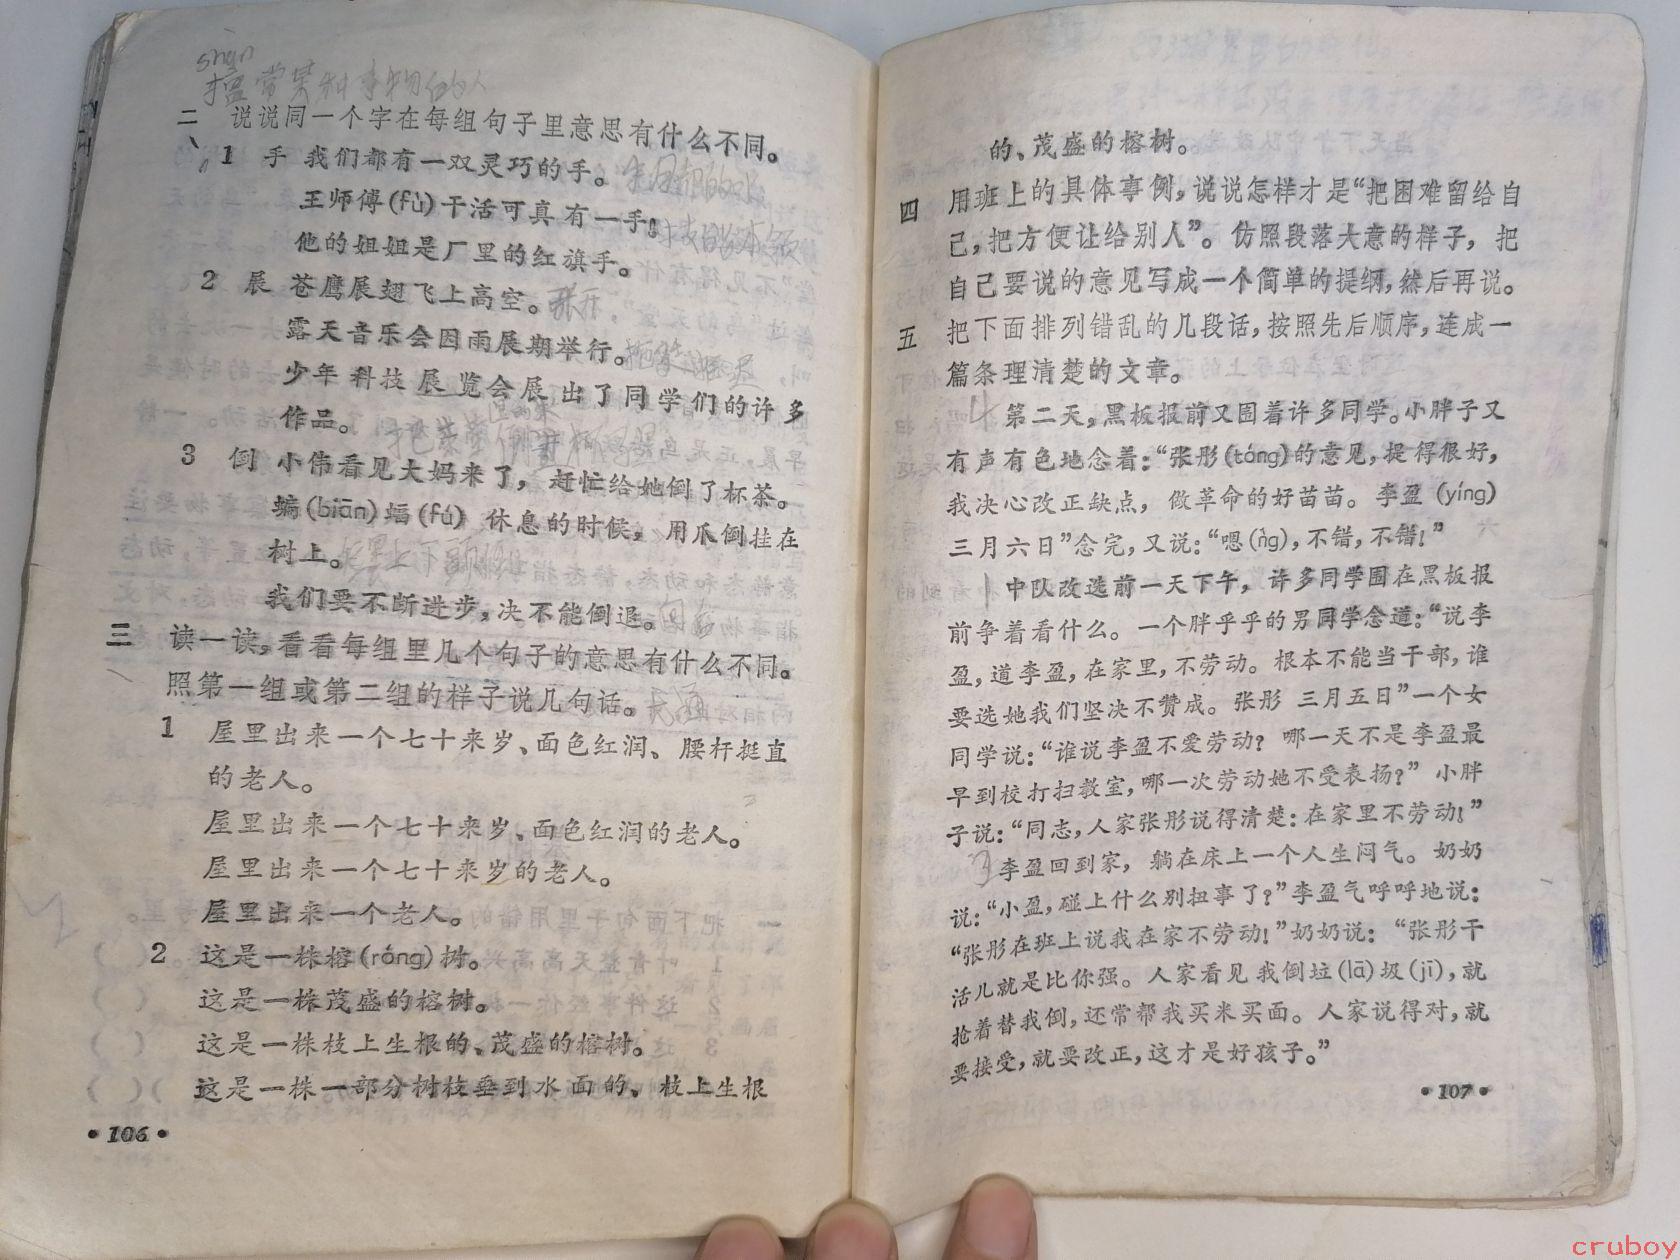 shàn
擅常某种事物的人
二、说说同一个字在每组句子里意思有什么不同。
1 手 我们都有一双灵巧的手。
王师傅(fù)干活可真有一手。
他的姐姐是厂里的红旗手。
2 展 苍鹰展翅飞上高空。张开
露天音乐会因雨展期举行。
少年科技展览会展出了同学们的许多
作品。
3 倒 小伟看见大妈来了，赶忙给她倒了杯茶。
蝙(biān)蝠(fú)休息的时候，用爪倒挂在
树上。
我们要不断进步，决不能倒退。
三 读一读，看看每组里几个句子的意思有什么不同。
照第一组或第二组的样子说几句话。
1 屋里出来一个七十来岁、面色红润、腰杆挺直
的老人。
屋里出来一个七十来岁、面色红润的老人。
屋里出来一个七十来岁的老人。
屋里出来一个老人。
2 这是一株榕(róng)树。
这是一株茂盛的榕树。
这是一株枝上生根的、茂盛的榕树。
这是一株一部分树枝垂到水面的、枝上生根
•106•
的、茂盛的榕树。
四 用班上的具体事例，说说怎样才是“把困难留给自
己，把方便让给别人”。仿照段落大意的样子，把
自己要说的意见写成一个简单的提纲，然后再说。
五 把下面排列错乱的几段话，按照先后顺序，连成一
篇条理清楚的文章。
第二天，黑板报前又围着许多同学。小胖子又
有声有色地念着：“张彤(tóng)的意见，提得很好，
我决心改正缺点，做革命的好苗苗。李盈(yíng)
三月六日”念完，又说：“嗯(ǹg)，不错，不错！”
1 中队改选前一天下午，许多同学围在黑板报
前争着看什么。一个胖乎乎的男同学念道：“说李
盈，道李盈，在家里，不劳动。根本不能当干部，谁
要选她我们坚决不赞成。张彤 三月五日”一个女
同学说：“谁说李盈不爱劳动？哪一天不是李盈最
早到校打扫教室，哪一次劳动她不受表扬？”小胖
子说：“同志，人家张彤说得清楚：在家里不劳动！”
李盈回到家，躺在床上一个人生闷气。奶奶
说：“小盈，碰上什么别扭事了？”李盈气呼呼地说：
“张彤在班上说我在家不劳动！”奶奶说：“张彤干
活儿就是比你强。人家看见我倒垃(lā)圾(jī)，就
抢着替我倒，还常帮我买米买面。人家说得对，就
要接受，就要改正，这才是好孩子。”
•107•
cruboy